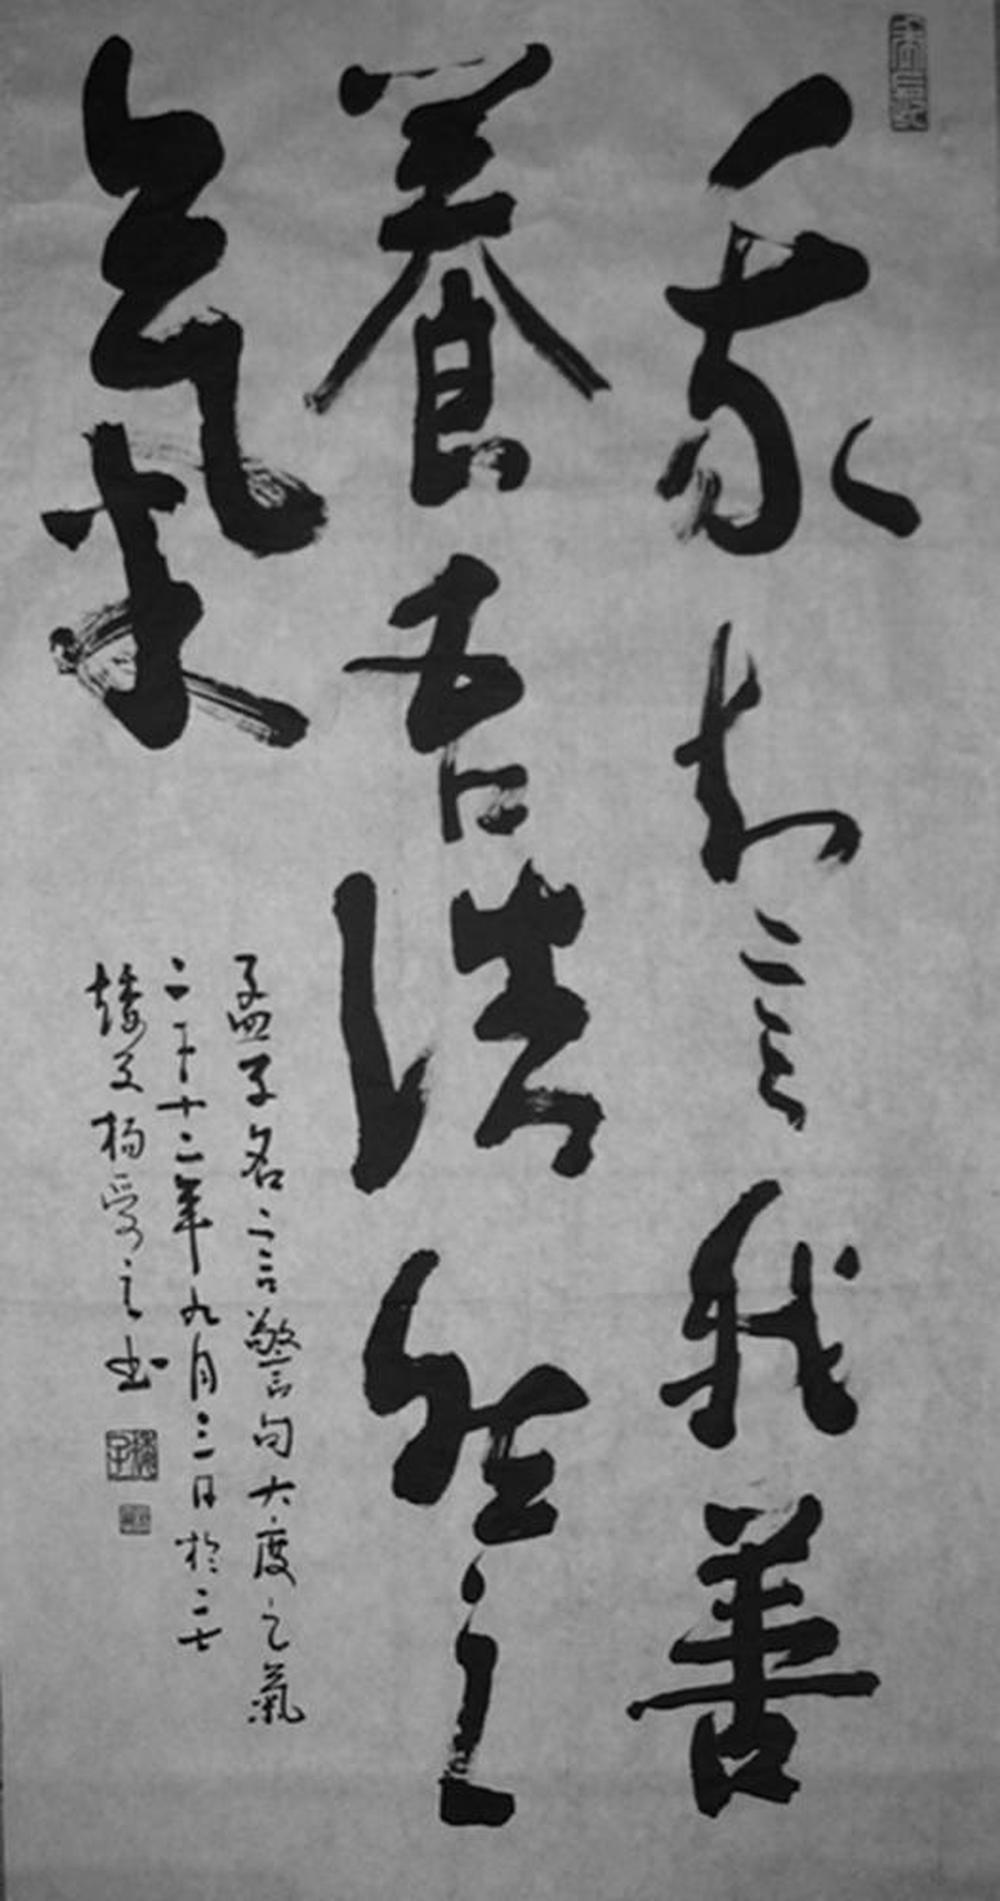 我知言我善
養吾浩然之
氣
孟子名言警句大度之氣
二千十二年九月三日於二七
杨受之书